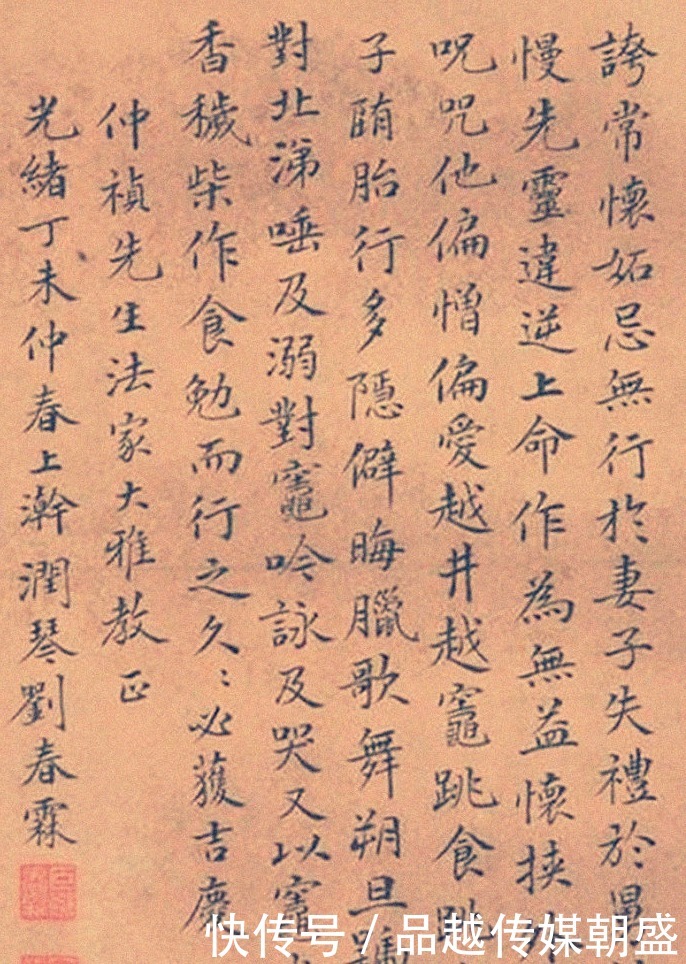 誇常懷妬忌無行於妻子失禮於舅
慢先靈違逆上命作為無益懷挾
呪咒他偏憎偏愛越井越竈跳食
子堕胎行多隱僻晦臘歌舞朔旦
對北涕唾及溺對竈吟詠及哭又以竈
香穢柴作食勉而行之久〻必獲吉慶
仲禎先生法家大雅教正
光緒丁未仲春上澣潤琴劉春霖
快传号/品越传媒朝盛